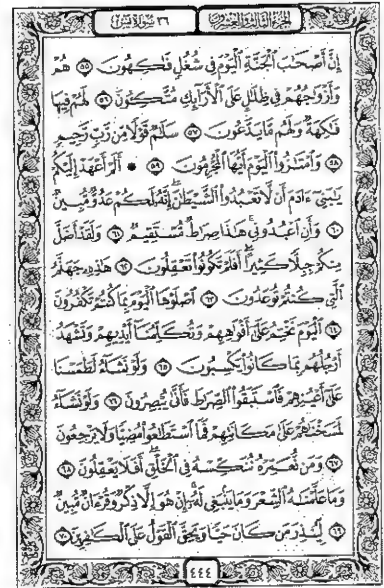 الجزء الثالث والعشرون ٣٦ سورة يس
إِنَّ أَصْحَٰبَ ٱلْجَنَّةِ ٱلْيَوْمَ فِى شُغُلٍ فَٰكِهُونَ ٥٥ هُمْ
وَأَزْوَٰجُهُمْ فِى ظِلَٰلٍ عَلَى ٱلْأَرَآئِكِ مُتَّكِـُٔونَ ٥٦ لَهُمْ فِيهَا
فَٰكِهَةٌ وَلَهُم مَّا يَدَّعُونَ ٥٧ سَلَٰمٌ قَوْلًا مِّن رَّبٍّ رَّحِيمٍ
٥٨ وَٱمْتَٰزُوا۟ ٱلْيَوْمَ أَيُّهَا ٱلْمُجْرِمُونَ ٥٩ أَلَمْ أَعْهَدْ إِلَيْكُمْ
يَٰبَنِىٓ ءَادَمَ أَن لَّا تَعْبُدُوا۟ ٱلشَّيْطَٰنَ إِنَّهُۥ لَكُمْ عَدُوٌّ مُّبِينٌ
٦٠ وَأَنِ ٱعْبُدُونِى هَٰذَا صِرَٰطٌ مُّسْتَقِيمٌ ٦١ وَلَقَدْ أَضَلَّ
مِنكُمْ جِبِلًّا كَثِيرًا أَفَلَمْ تَكُونُوا۟ تَعْقِلُونَ ٦٢ هَٰذِهِۦ جَهَنَّمُ
ٱلَّتِى كُنتُمْ تُوعَدُونَ ٦٣ ٱصْلَوْهَا ٱلْيَوْمَ بِمَا كُنتُمْ تَكْفُرُونَ
٦٤ ٱلْيَوْمَ نَخْتِمُ عَلَىٰٓ أَفْوَٰهِهِمْ وَتُكَلِّمُنَآ أَيْدِيهِمْ وَتَشْهَدُ
أَرْجُلُهُم بِمَا كَانُوا۟ يَكْسِبُونَ ٦٥ وَلَوْ نَشَآءُ لَطَمَسْنَا
عَلَىٰٓ أَعْيُنِهِمْ فَٱسْتَبَقُوا۟ ٱلصِّرَٰطَ فَأَنَّىٰ يُبْصِرُونَ ٦٦ وَلَوْ نَشَآءُ
لَمَسَخْنَٰهُمْ عَلَىٰ مَكَانَتِهِمْ فَمَا ٱسْتَطَٰعُوا۟ مُضِيًّا وَلَا يَرْجِعُونَ
٦٧ وَمَن نُّعَمِّرْهُ نُنَكِّسْهُ فِى ٱلْخَلْقِ أَفَلَا يَعْقِلُونَ ٦٨
وَمَا عَلَّمْنَٰهُ ٱلشِّعْرَ وَمَا يَنۢبَغِى لَهُۥٓ إِنْ هُوَ إِلَّا ذِكْرٌ وَقُرْءَانٌ مُّبِينٌ
٦٩ لِّيُنذِرَ مَن كَانَ حَيًّا وَيَحِقَّ ٱلْقَوْلُ عَلَى ٱلْكَٰفِرِينَ ٧٠
٤٤٤